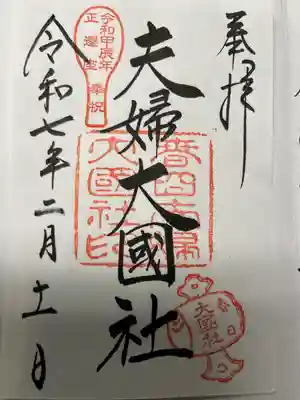 奉拝
春日夫婦
大國社印
夫婦大國社
春日
大國社
令和甲辰年
正遷座
奉祝
令和七年二月十一日